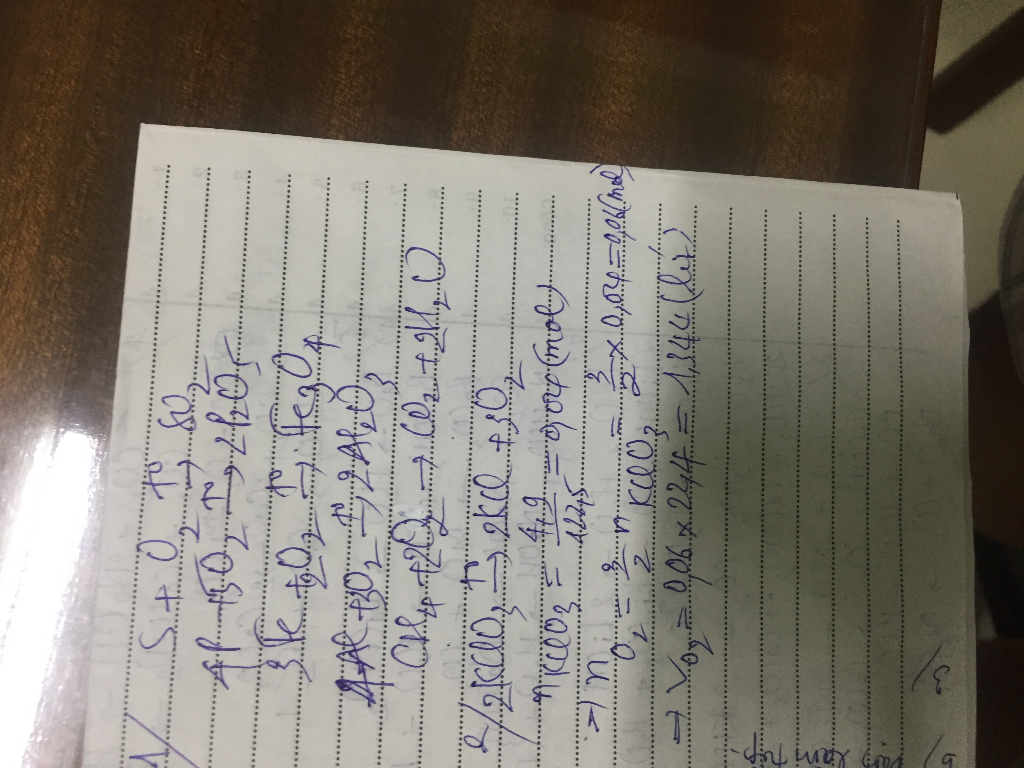 1/ S + O2 →T° SO2
4P + 5O2 →T° 2P2O5
3Fe + 2O2 →T° Fe3O4
4Al + 3O2 →T° 2Al2O3
CH4 + 2O2 → CO2 + 2H2O
2/ 2KClO3 →T° 2KCl + 3O2
nKClO3 = 4,9/122,5 = 0,04 (mol)
=> nO2 = 3/2 nKClO3 = 3/2 x 0,04 = 0,06 (mol)
→ VO2 = 0,06 x 22,4 = 1,344 (lít)
3/
b/
làm tiếp.